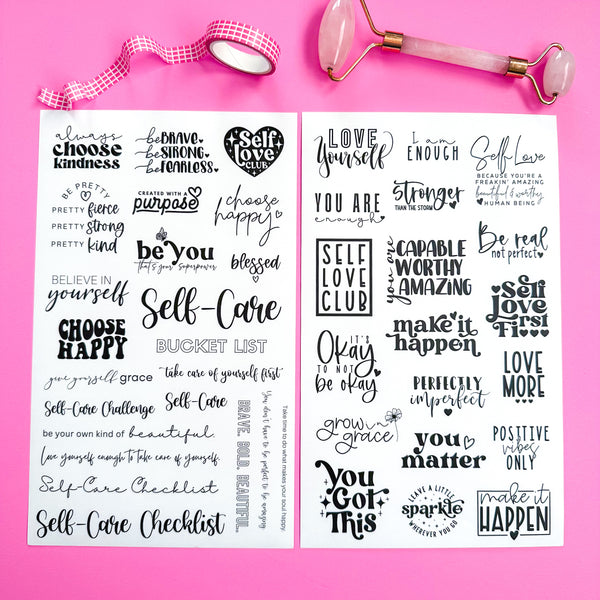 always
choose
kindness
be BRAVE
be STRONG
be FEARLESS
Self
love
CLUB
BE PRETTY
PRETTY fierce
PRETTY strong
PRETTY kind
CREATED WITH A
purpose
choose
happy
be you
that's your superpower
blessed
BELIEVE IN
yourself
Self-Care
BUCKET LIST
CHOOSE
HAPPY
give yourself grace
take care of yourself first
Self-Care Challenge
Self-Care
be your own kind of beautiful.
Love yourself enough to take care of yourself.
Self-Care Checklist
Self-Care Checklist
BRAVE. BOLD. BEAUTIFUL.
You don't have to be perfect to be amazing
Take time to do what makes your soul happy
LOVE
Yourself
I am
ENOUGH
Self Love
BECAUSE YOU'RE A
FREAKIN' AMAZING
beautiful & worthy
HUMAN BEING
YOU ARE
enough
Stronger
THAN THE STORM
SELF
LOVE
CLUB
you are
CAPABLE
WORTHY
AMAZING
Be real
not perfect
Self
Love
First
make it
happen
IT'S
Okay
TO NOT
be okay
LOVE
MORE
PERFECTLY
imperfect
grow in
grace
you
matter
POSITIVE
vibes
ONLY
You
Got
This
LEAVE A LITTLE
sparkle
WHEREVER YOU GO
make it
HAPPEN